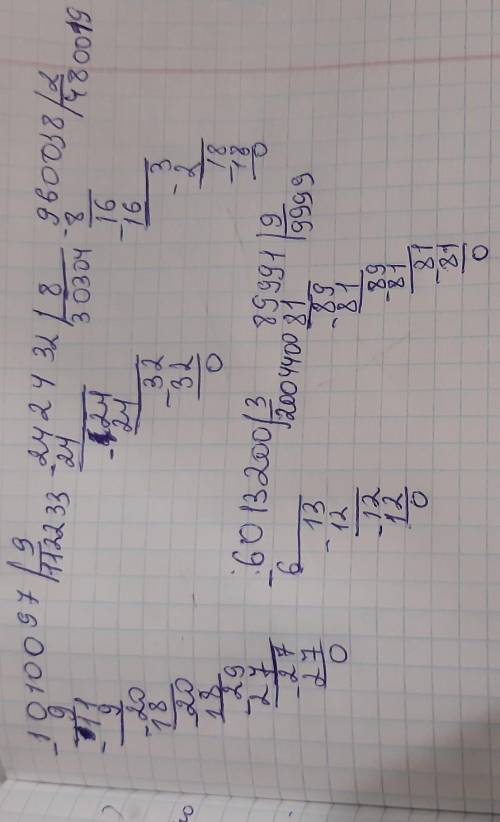 -1010097 | 9
9 112233
-11
9
-20
18
-20
18
-29
27
-27
27
0
-242432 | 8
24 30304
-24
24
-32
32
0
-960038 | 2
8 480019
-16
16
-3
2
-18
18
0
-6013200 | 3
6 2004400
-13
12
-12
12
0
89991 | 9
81 9999
-89
81
-89
81
-81
81
0